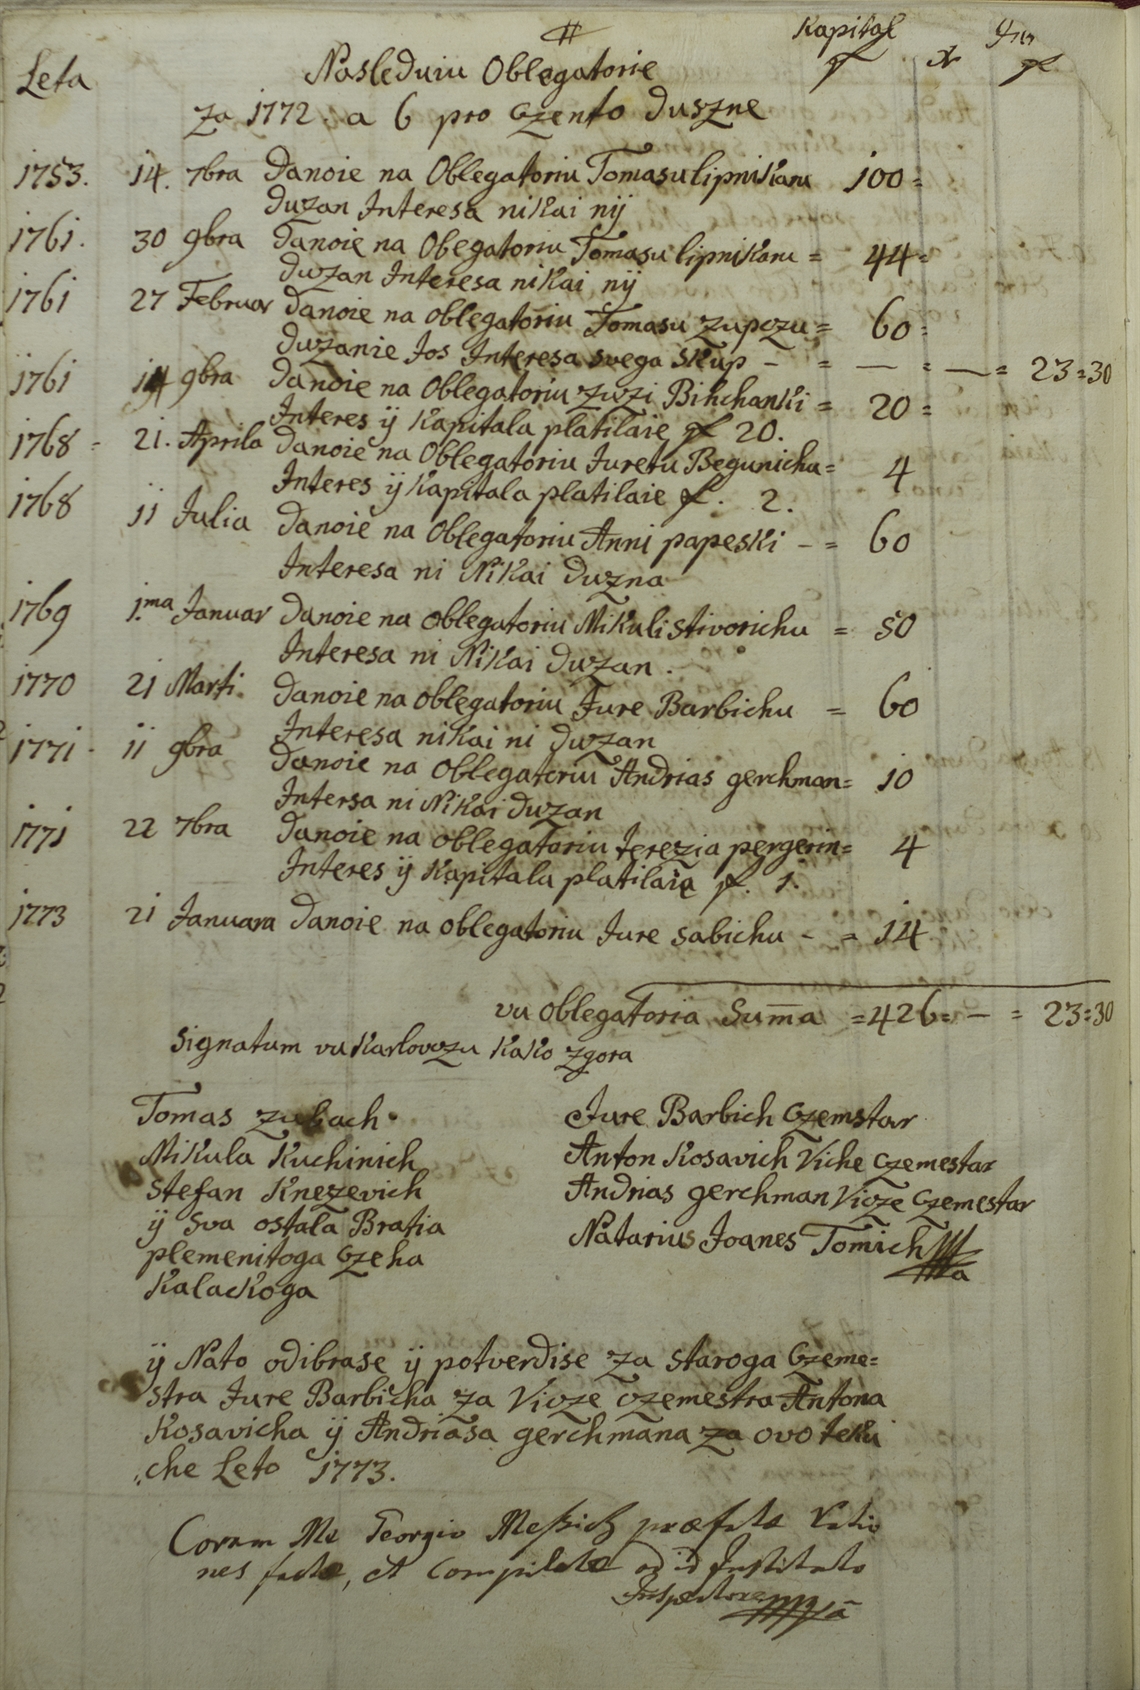 Kapital
Leta Nasleduiu Oblegatorie f x f
za 1772. a 6 pro Czento Duszne
1753. 14. 7bra Danoie na Oblegatoriu Tomasu lipnikaru 100 =
Duzan Interesa nikai nij
1761. 30 9bra Danoie na Obegatoriu Tomasu lipnikaru = 44 =
Duzan Interesa nikai nij
1761 27 Februar Danoie na oblegatoriu Tomasu zupczu = 60 =
Duzanie Jos Interesa svega Skup - = — = — = 23=30
1761 14 9bra Danoie na Oblegatoriu zuzi Bihchanki = 20 =
Interes ij Kapitala platilaie f 20.
1768 = 21. Aprila Danoie na Oblegatoriu Juretu Begunichu = 4
Interes ij Kapitala platilaie f. 2.
1768 11 Julia Danoie na Oblegatoriu Anni papeski - = 60
Interesa ni Nikai Duzna
1769 1.ma Januar Danoie na oblegatoriu Mikuli stivorichu = 50
Interesa ni Nikai Duzan.
1770 21 Marti. Danoie na oblegatoriu Jure Barbichu = 60
Interesa nikai ni Duzan
1771 - 11 9bra Danoie na Oblegatoriu Andrias gerchman = 10
Intersa ni Nikai Duzan
1771 22 7bra Danoie na oblegatoriu Terezia pergerin = 4
Interes ij Kapitala platilaie f. 1.
1773 21 Januara Danoie na oblegatoriu Jure sabichu - = 14
vu oblegatoria Suma = 426 = — = 23=30
Signatum vu Karlovczu Kako zgora
Tomas zubach Jure Barbich Czemstar
Mikula Kuchinich Anton Kosavich Viche Czemestar
Stefan Knezevich Andrias gerchman Vicze Czemestar
ij Sva ostala Bratia Natarius Joanes Tomich mpa
plemenitoga Czeha
Kalackoga
ij Nato odibrase ij potverdise za staroga Czeme=
stra Jure Barbicha za Vicze czemestra Antona
Kosavicha ij Andriasa gerchmana za ovo teku
„che Leto 1773.
Coram Me Georgio præfatæ Ratio
nes factæ, et Compilatæ ad id Instituto
Inspectore mpa